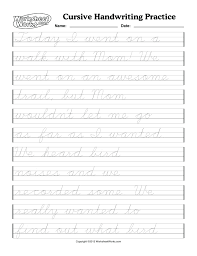 Worksheet Works.com
Cursive Handwriting Practice
Name: Date:
Today I went on a
walk with Mom! We
went on an awesome
trail, but Mom
wouldn't let me go
as far as I wanted.
We heard bird
noises and we
recorded some. We
really wanted to
find out what bird
Copyright ©2012 WorksheetWorks.com